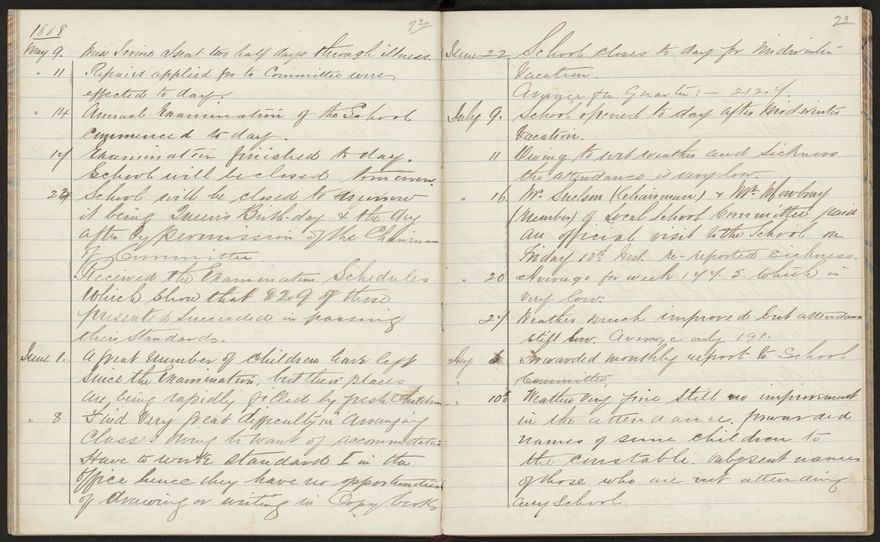 22
1888
May 9. Miss Irvine absent two half days through illness.
" 11 Repairs applied for to Committee were
effected to day.
" 14 Annual Examination of the School
commenced to day.
17 Examination finished to day.
School will be closed tomorrow.
School will be closed to morrow
it being Queen's Birth-day & the day
after by permission of the Chairman
of Committee
Received the Examination Schedules
which show that 82.9 of those
presented succeeded in passing
their Standards.
June 1. A great number of children have left
since the Examination, but their places
are being rapidly filled by fresh Children.
" 8 Find very great difficulty in arranging
Classes owing to want of accommodation.
Have to work Standard I in the
office hence they have no opportunities
of drawing or writing in Copy books
23
June 22 School closes to day for Midwinter
Vacation.
Average for Quarter:— 212.7.
July 9. School opened to day after Midwinter
Vacation.
11 Owing to wet weather and sickness
the attendance is very low.
" 16 Mr. Snelson (Chairman) & Mr. Mowbray
(Member) of Local School Committee paid
an official visit to the School on
Friday 13th Inst. re-reported Sickness.
" 20 Average for week 177.5. which is
very low.
27 Weather much improved but attendance
still low. Average only 191.
Aug 6 Forwarded monthly report to School
Committee.
" 10th Weather very fine still no improvement
in the attendance. forwarded
names of some children to
the constable. also sent names
of those who are not attending
any School.